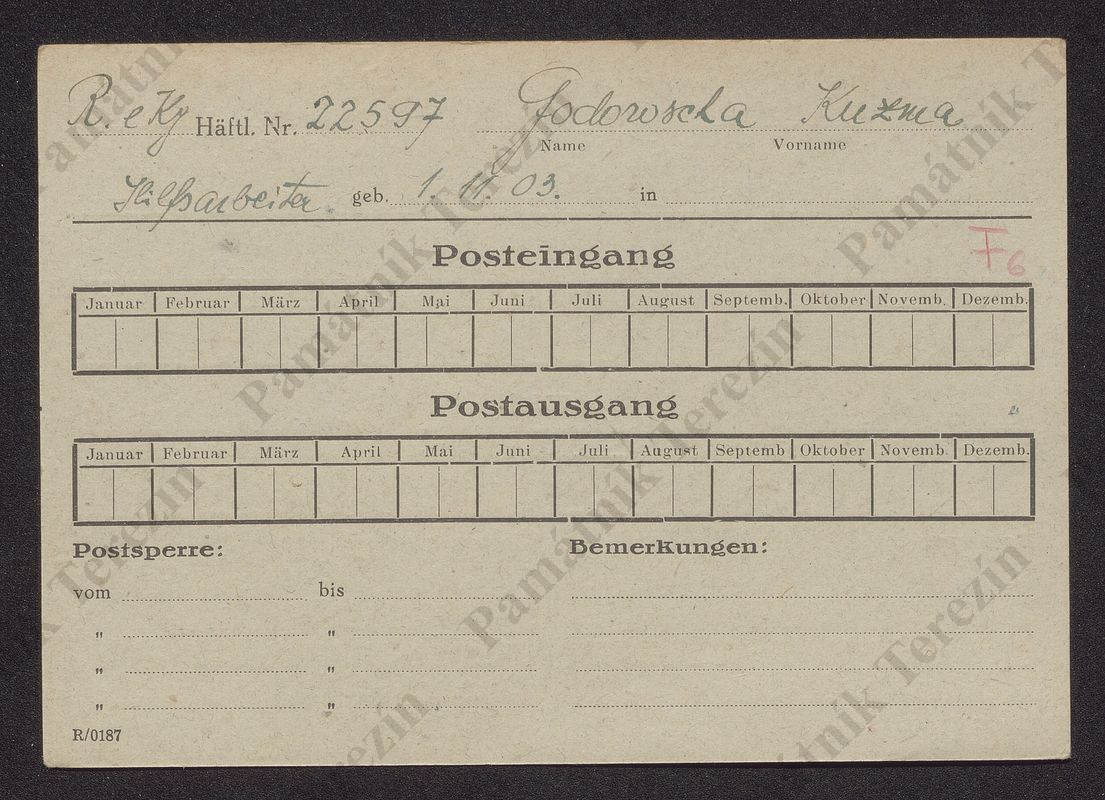 Häftl. Nr. 22597 Fodorowscha Kuzma
Name Vorname
Hilfsarbeiter. geb. 1. 11. 03. in
Posteingang
F6
Januar Februar März April Mai Juni Juli August Septemb. Oktober Novemb. Dezemb.
Postausgang
Januar Februar März April Mai Juni Juli August Septemb Oktober Novemb. Dezemb.
Postsperre: Bemerkungen:
vom bis
" "
" "
" "
R/0187
Památník Terezín